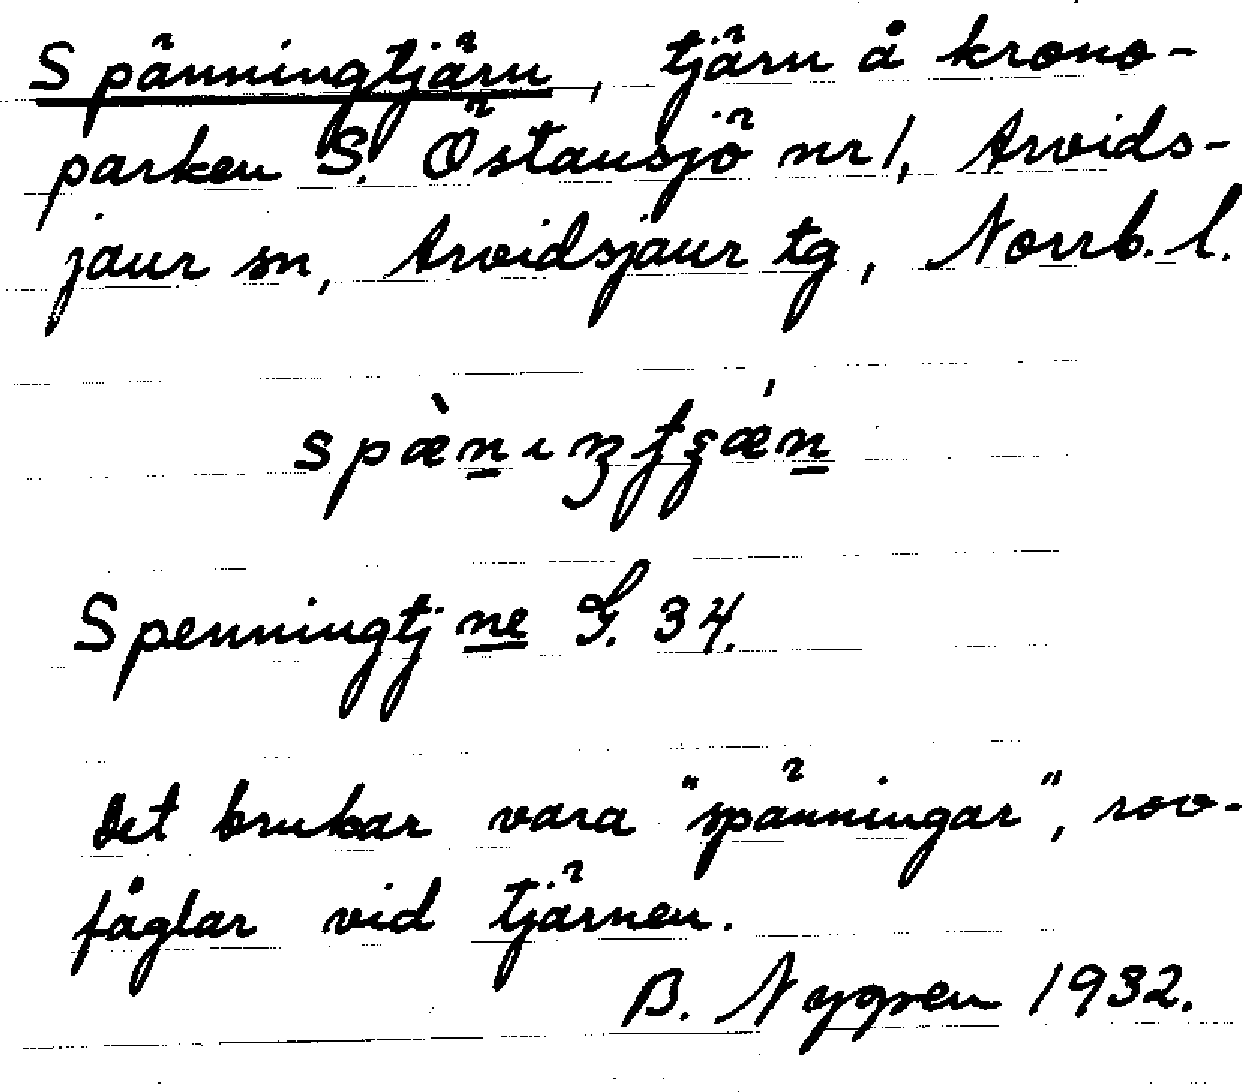 Spänningtjärn, tjärn å krono-
parken S. Östansjö nr 1, Arvids-
jaur sn, Arvidsjaur tg, Norrb. l.
Spenningtjne G. 34.
Det brukar vara "spänningar", rov-
fåglar vid tjärnen.
B. Nygren 1932.